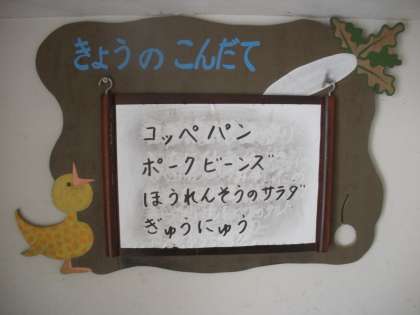 きょうの こんだて
コッペパン
ポークビーンズ
ほうれんそうのサラダ
ぎゅうにゅう